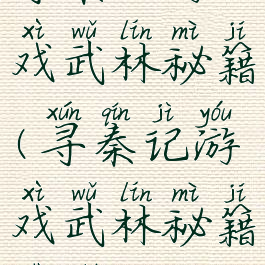 xì wǔ lín mì jí
戏武林秘籍
xún qín jì yóu
(寻秦记游
xì wǔ lín mì jí
戏武林秘籍